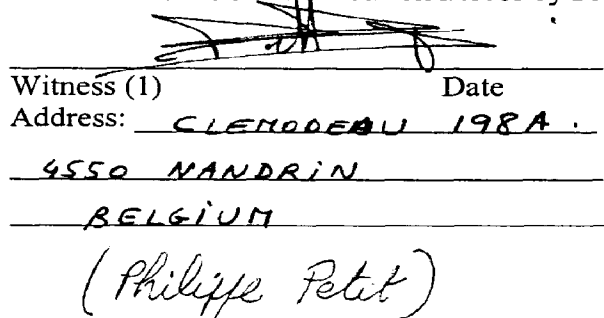 Witness (1) Date
Address: CLEMODEAU 198A.
4550 NANDRIN
BELGIUM
(Philippe Petit)